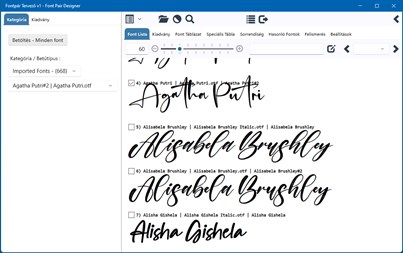 Fontpár Tervező v1 - Font Pair Designer
Kategória Kiadvány
Betöltés - Minden font
Kategória / Betűtípus :
Imported Fonts - (668)
Agatha Putri#2 | Agatha Putri.otf
Font Lista Kiadvány Font Táblázat Speciális Tábla Sorrendiség Hasonló Fontok Felismerés Beállítások
60
4) Agatha Putri | Agatha Putri.otf | Agatha Putri#2
Agatha Putri
5) Alisabela Brushley | Alisabela Brushley Italic.otf | Alisabela Brushley
Alisabela Brushley
6) Alisabela Brushley | Alisabela Brushley.otf | Alisabela Brushley#2
Alisabela Brushley
7) Alisha Gishela | Alisha Gishela Italic.otf | Alisha Gishela
Alisha Gishela